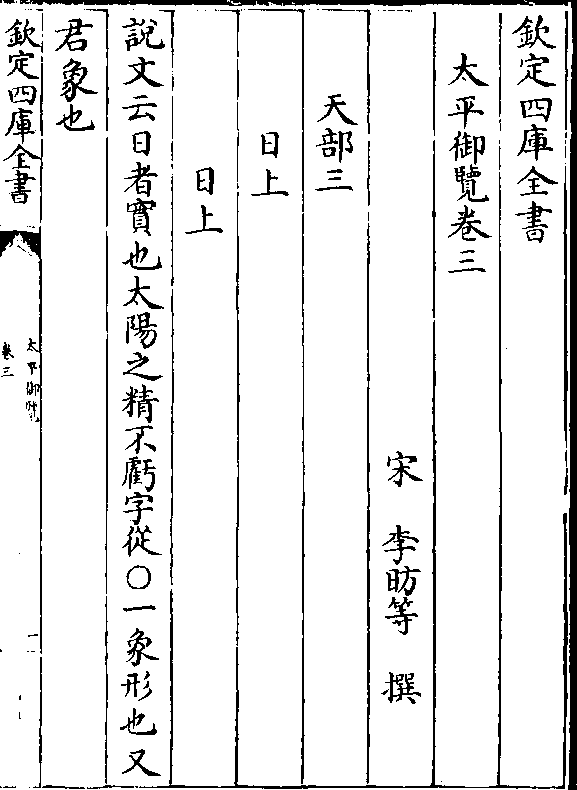 欽定四庫全書
太平御覽卷三
宋　李昉等　撰
天部三
日上
日上
說文云日者實也太陽之精不虧字從〇一象形也又
君象也
欽定四庫全書
太平御覽
卷三
一